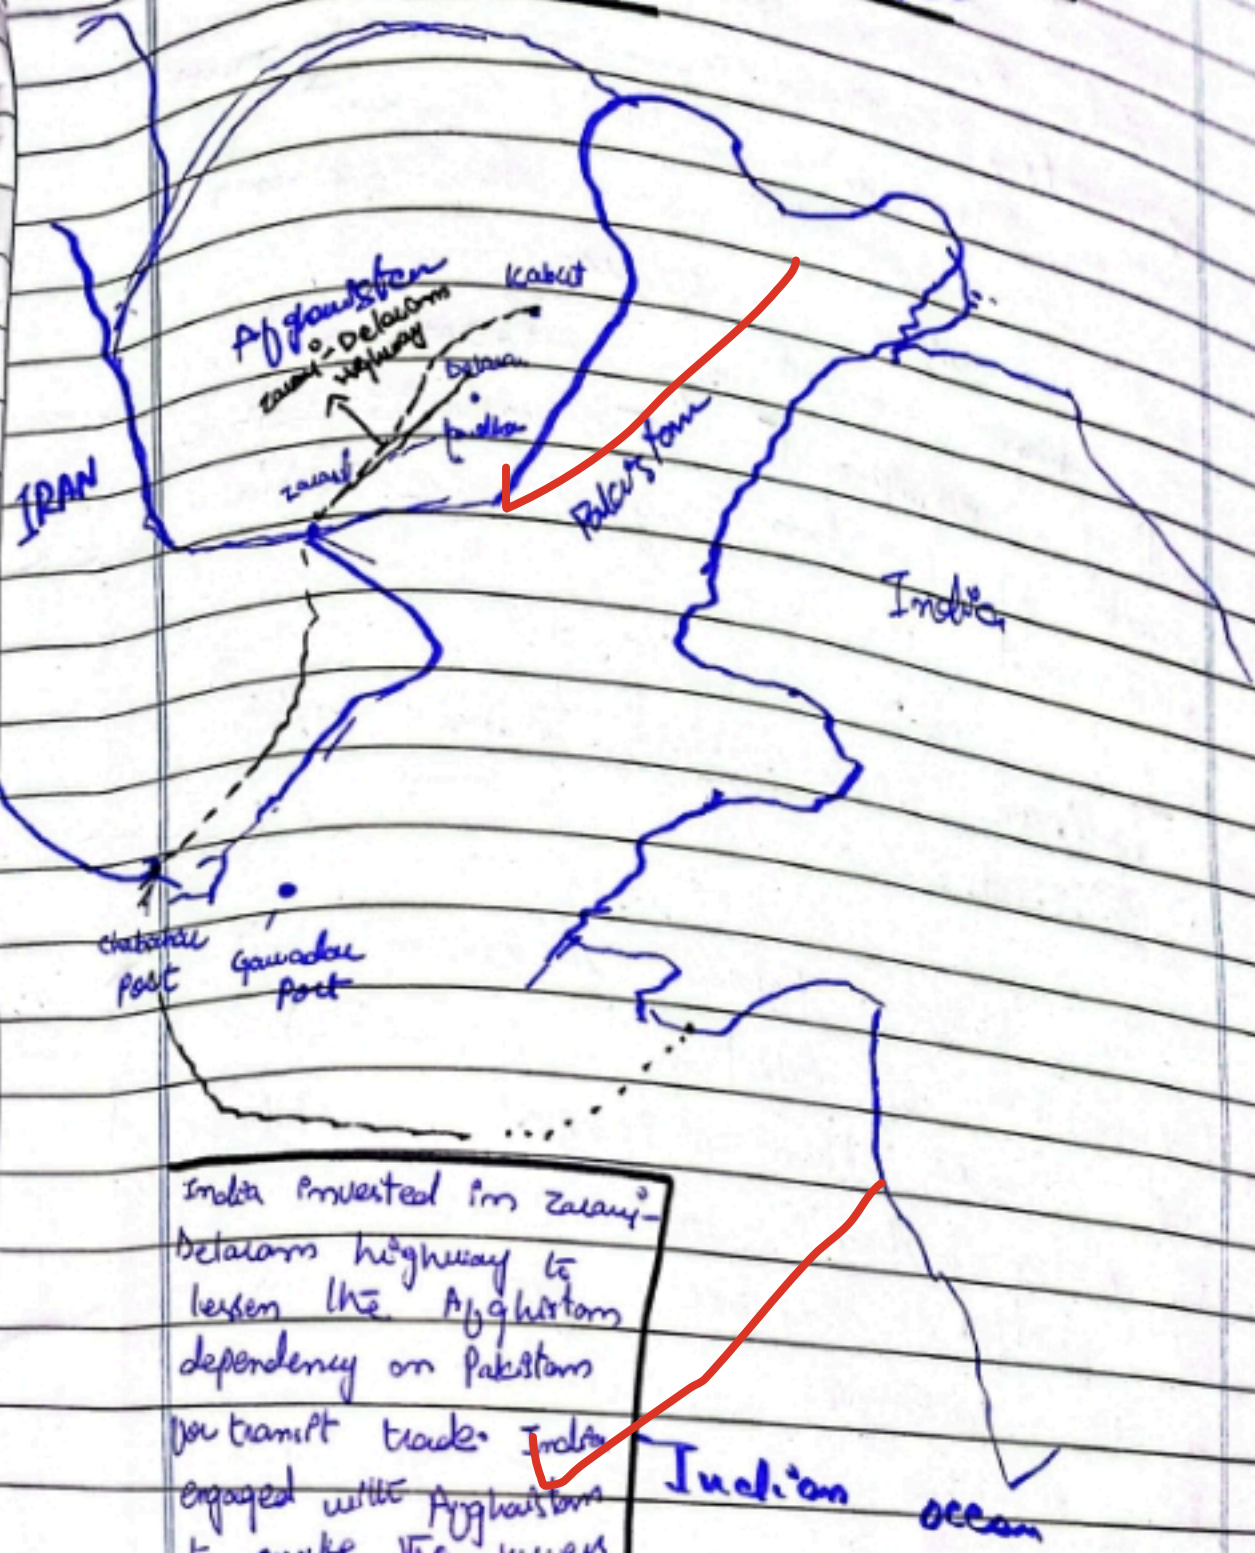 Kabul
Afganistan
Zaranj-Delaram
Highway
Delaram
Zaranj
IRAN
Pakistan
India
Chabahar
Port
Gawadar
Port
India invested in Zaranj-
Delaram highway to
lessen the Afghistan
dependency on Pakistan
for transit trade. India
engaged with Afghaistan
Indian ocean